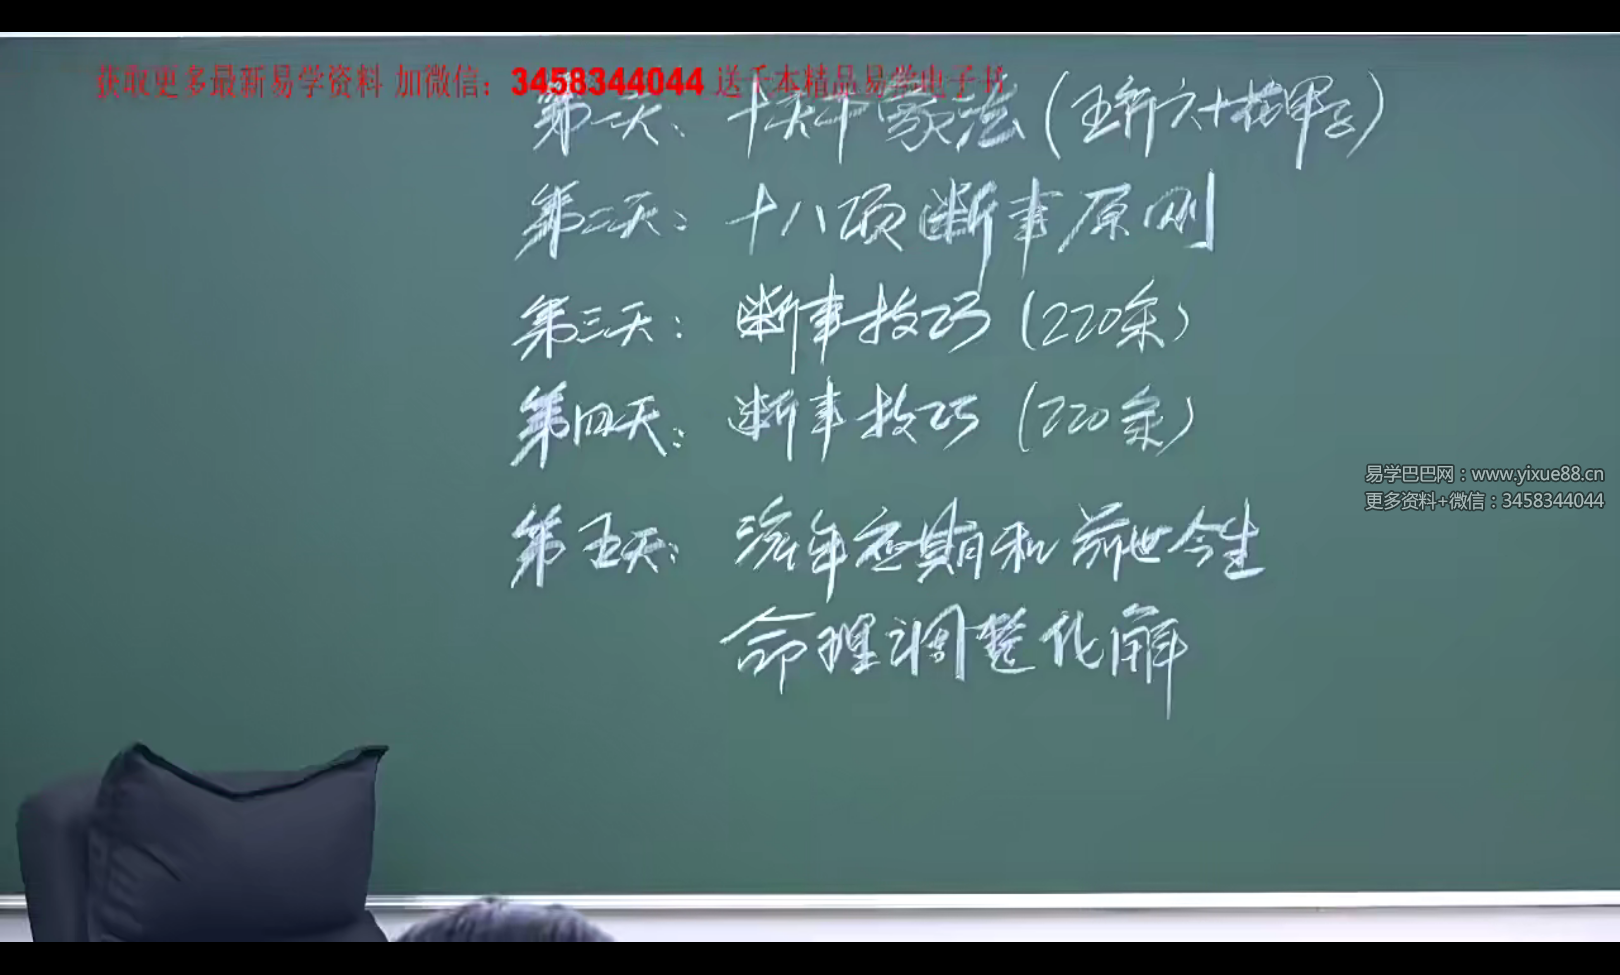 获取更多最新易学资料 加微信：3458344044 送千本精品易学电子书
第一天：十天干象法（五行六十花甲子）
第二天：十八项断事原则
第三天：断事技巧（220条）
第四天：断事技巧（220条）
易学巴巴网：www.yixue88.cn
更多资料+微信：3458344044
第五天：流年应期和前世今生
命理调整化解